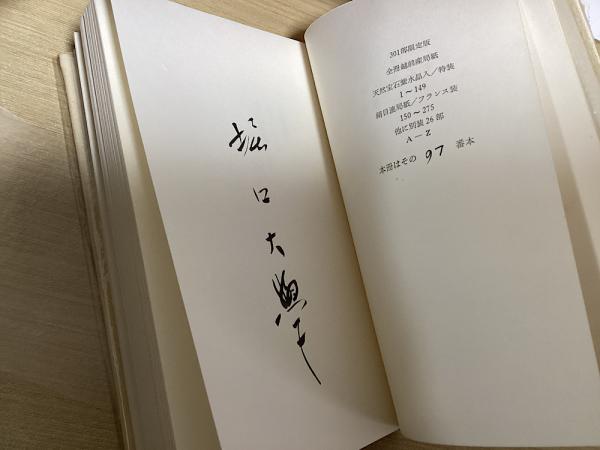 堀口大學
301部限定版
全冊越前産局紙
天然宝石紫水晶入/特装
1～149
絹目漉局紙/フランス装
150～275
他に別装26部
A—Z
本冊はその 97 番本